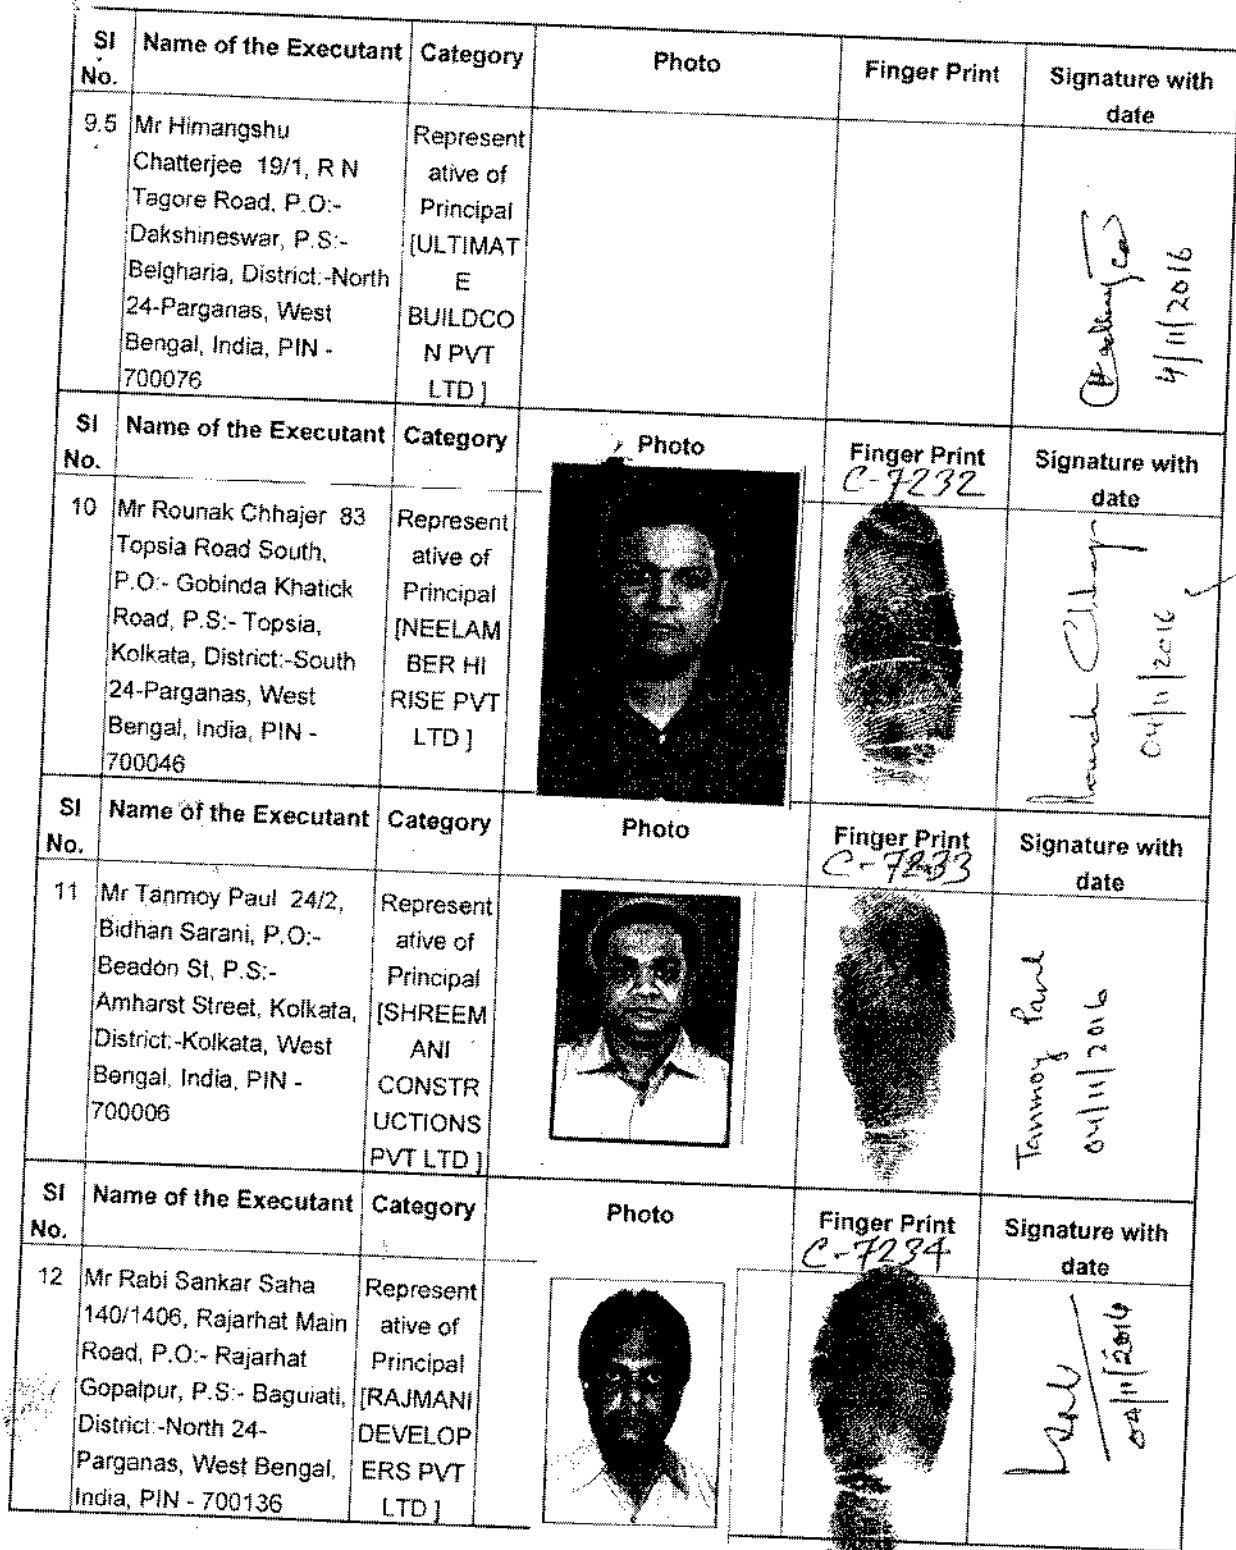 Sl No. Name of the Executant Category Photo Finger Print Signature with date
9.5 Mr Himangshu
Chatterjee 19/1, R N
Tagore Road, P.O:-
Dakshineswar, P.S:-
Belgharia, District:-North
24-Parganas, West
Bengal, India, PIN -
700076
Represent
ative of
Principal
[ULTIMAT
E
BUILDCO
N PVT
LTD ]
4/11/2016
Sl No. Name of the Executant Category Photo Finger Print Signature with date
C-7232
10 Mr Rounak Chhajer 83
Topsia Road South,
P.O:- Gobinda Khatick
Road, P.S:- Topsia,
Kolkata, District:-South
24-Parganas, West
Bengal, India, PIN -
700046
Represent
ative of
Principal
[NEELAM
BER HI
RISE PVT
LTD ]
04/11/2016
Sl No. Name of the Executant Category Photo Finger Print Signature with date
C-7233
11 Mr Tanmoy Paul 24/2,
Bidhan Sarani, P.O:-
Beadon St, P.S:-
Amharst Street, Kolkata,
District:-Kolkata, West
Bengal, India, PIN -
700006
Represent
ative of
Principal
[SHREEM
ANI
CONSTR
UCTIONS
PVT LTD ]
Tanmoy Paul
04/11/2016
Sl No. Name of the Executant Category Photo Finger Print Signature with date
C-7234
12 Mr Rabi Sankar Saha
140/1406, Rajarhat Main
Road, P.O:- Rajarhat
Gopalpur, P.S:- Baguiati,
District:-North 24-
Parganas, West Bengal,
India, PIN - 700136
Represent
ative of
Principal
[RAJMANI
DEVELOP
ERS PVT
LTD ]
04/11/2016